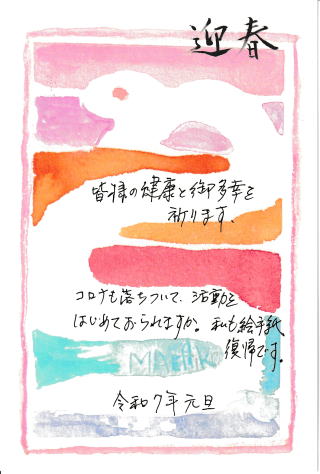 迎春
皆様の健康と御多幸を
祈ります。
コロナも落ちついて、活動を
はじめておられますか。私も絵手紙
復帰です。
令和7年元旦